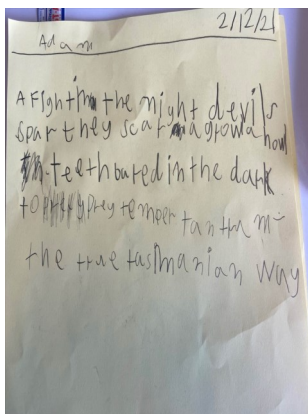 2/12/21
Adam
A Fight in the night devils
spar they scar growl a howl
teeth bared in the dark
to prey temper tantrum -
the true tasmanian way